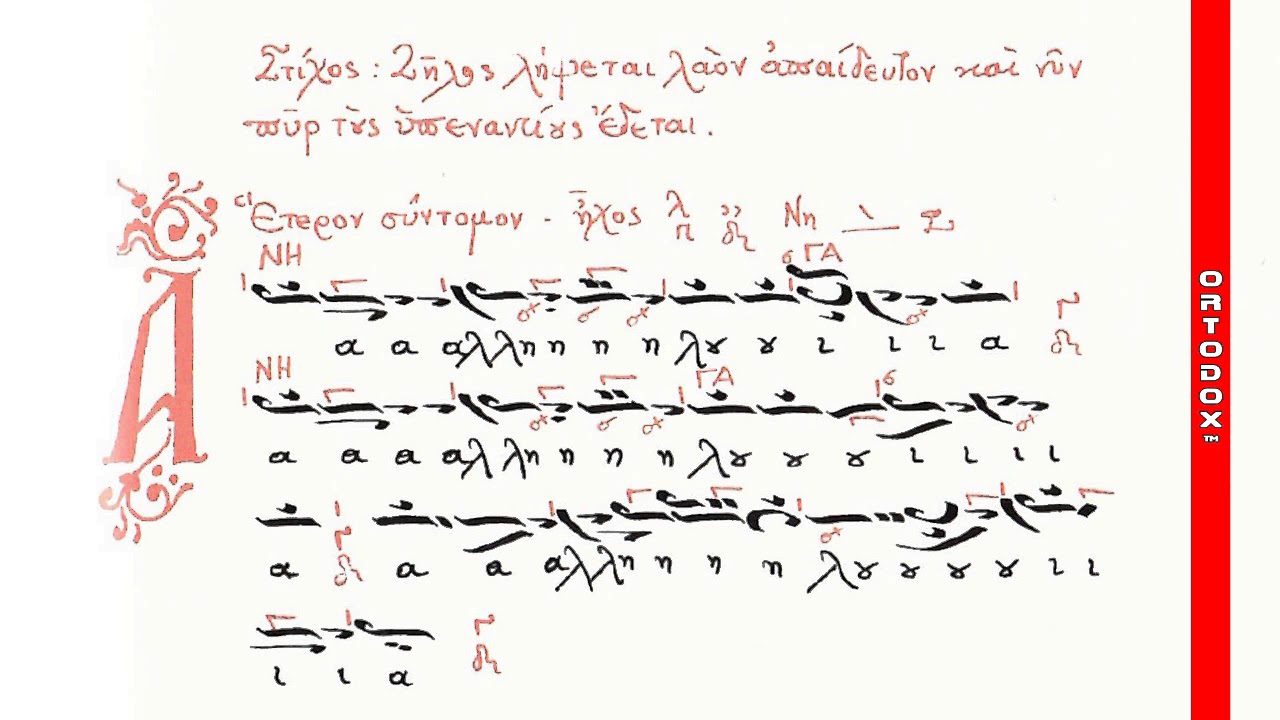 Στίχος : Ζῆλος λήψεται λαὸν ἀπαίδευτον καὶ νῦν
πῦρ τοὺς ὑπεναντίους ἔδεται.
Ἕτερον σύντομον - ἦχος λ π δη Νη
ΝΗ ΓΑ
Α α α αλλη η η η λȣ ȣ ι ι ι α
δη
ΝΗ ΓΑ
α α α αλλη η η η λȣ ȣ ȣ ι ι ι ι
α δη α α αλλη η η η λȣ ȣ ȣ ȣ ι ι
ι ι α
δη
ORTODOX™